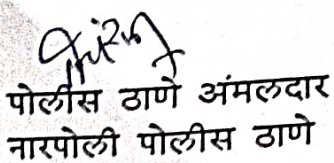 पोलीस ठाणे अंमलदार
नारपोली पोलीस ठाणे